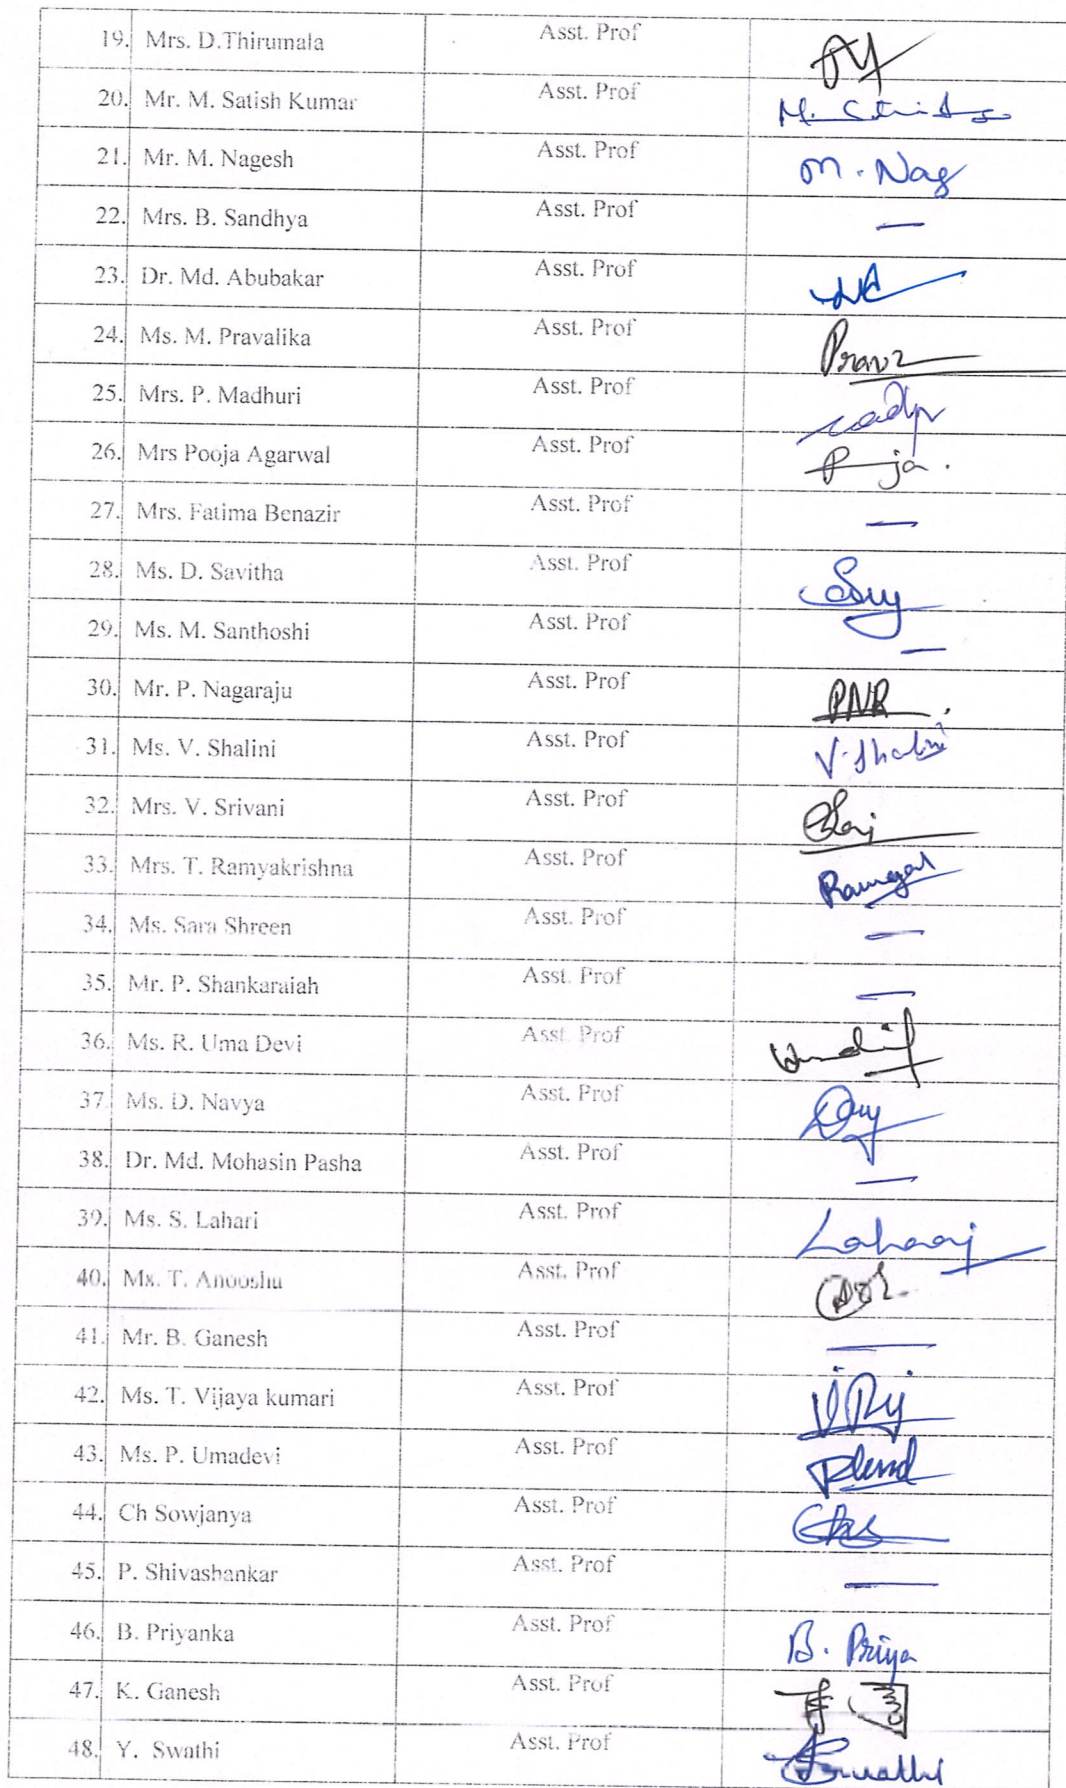 19. Mrs. D.Thirumala Asst. Prof
20. Mr. M. Satish Kumar Asst. Prof
21. Mr. M. Nagesh Asst. Prof M. Nag
22. Mrs. B. Sandhya Asst. Prof —
23. Dr. Md. Abubakar Asst. Prof
24. Ms. M. Pravalika Asst. Prof
25. Mrs. P. Madhuri Asst. Prof
26. Mrs Pooja Agarwal Asst. Prof
27. Mrs. Fatima Benazir Asst. Prof —
28. Ms. D. Savitha Asst. Prof
29. Ms. M. Santhoshi Asst. Prof —
30. Mr. P. Nagaraju Asst. Prof PNR
31. Ms. V. Shalini Asst. Prof V. Shalini
32. Mrs. V. Srivani Asst. Prof
33. Mrs. T. Ramyakrishna Asst. Prof
34. Ms. Sara Shreen Asst. Prof —
35. Mr. P. Shankaraiah Asst. Prof —
36. Ms. R. Uma Devi Asst. Prof
37. Ms. D. Navya Asst. Prof
38. Dr. Md. Mohasin Pasha Asst. Prof —
39. Ms. S. Lahari Asst. Prof Lahari
40. Ms. T. Anoosha Asst. Prof
41. Mr. B. Ganesh Asst. Prof —
42. Ms. T. Vijaya kumari Asst. Prof
43. Ms. P. Umadevi Asst. Prof
44. Ch Sowjanya Asst. Prof
45. P. Shivashankar Asst. Prof —
46. B. Priyanka Asst. Prof B. Priya
47. K. Ganesh Asst. Prof
48. Y. Swathi Asst. Prof Swathi